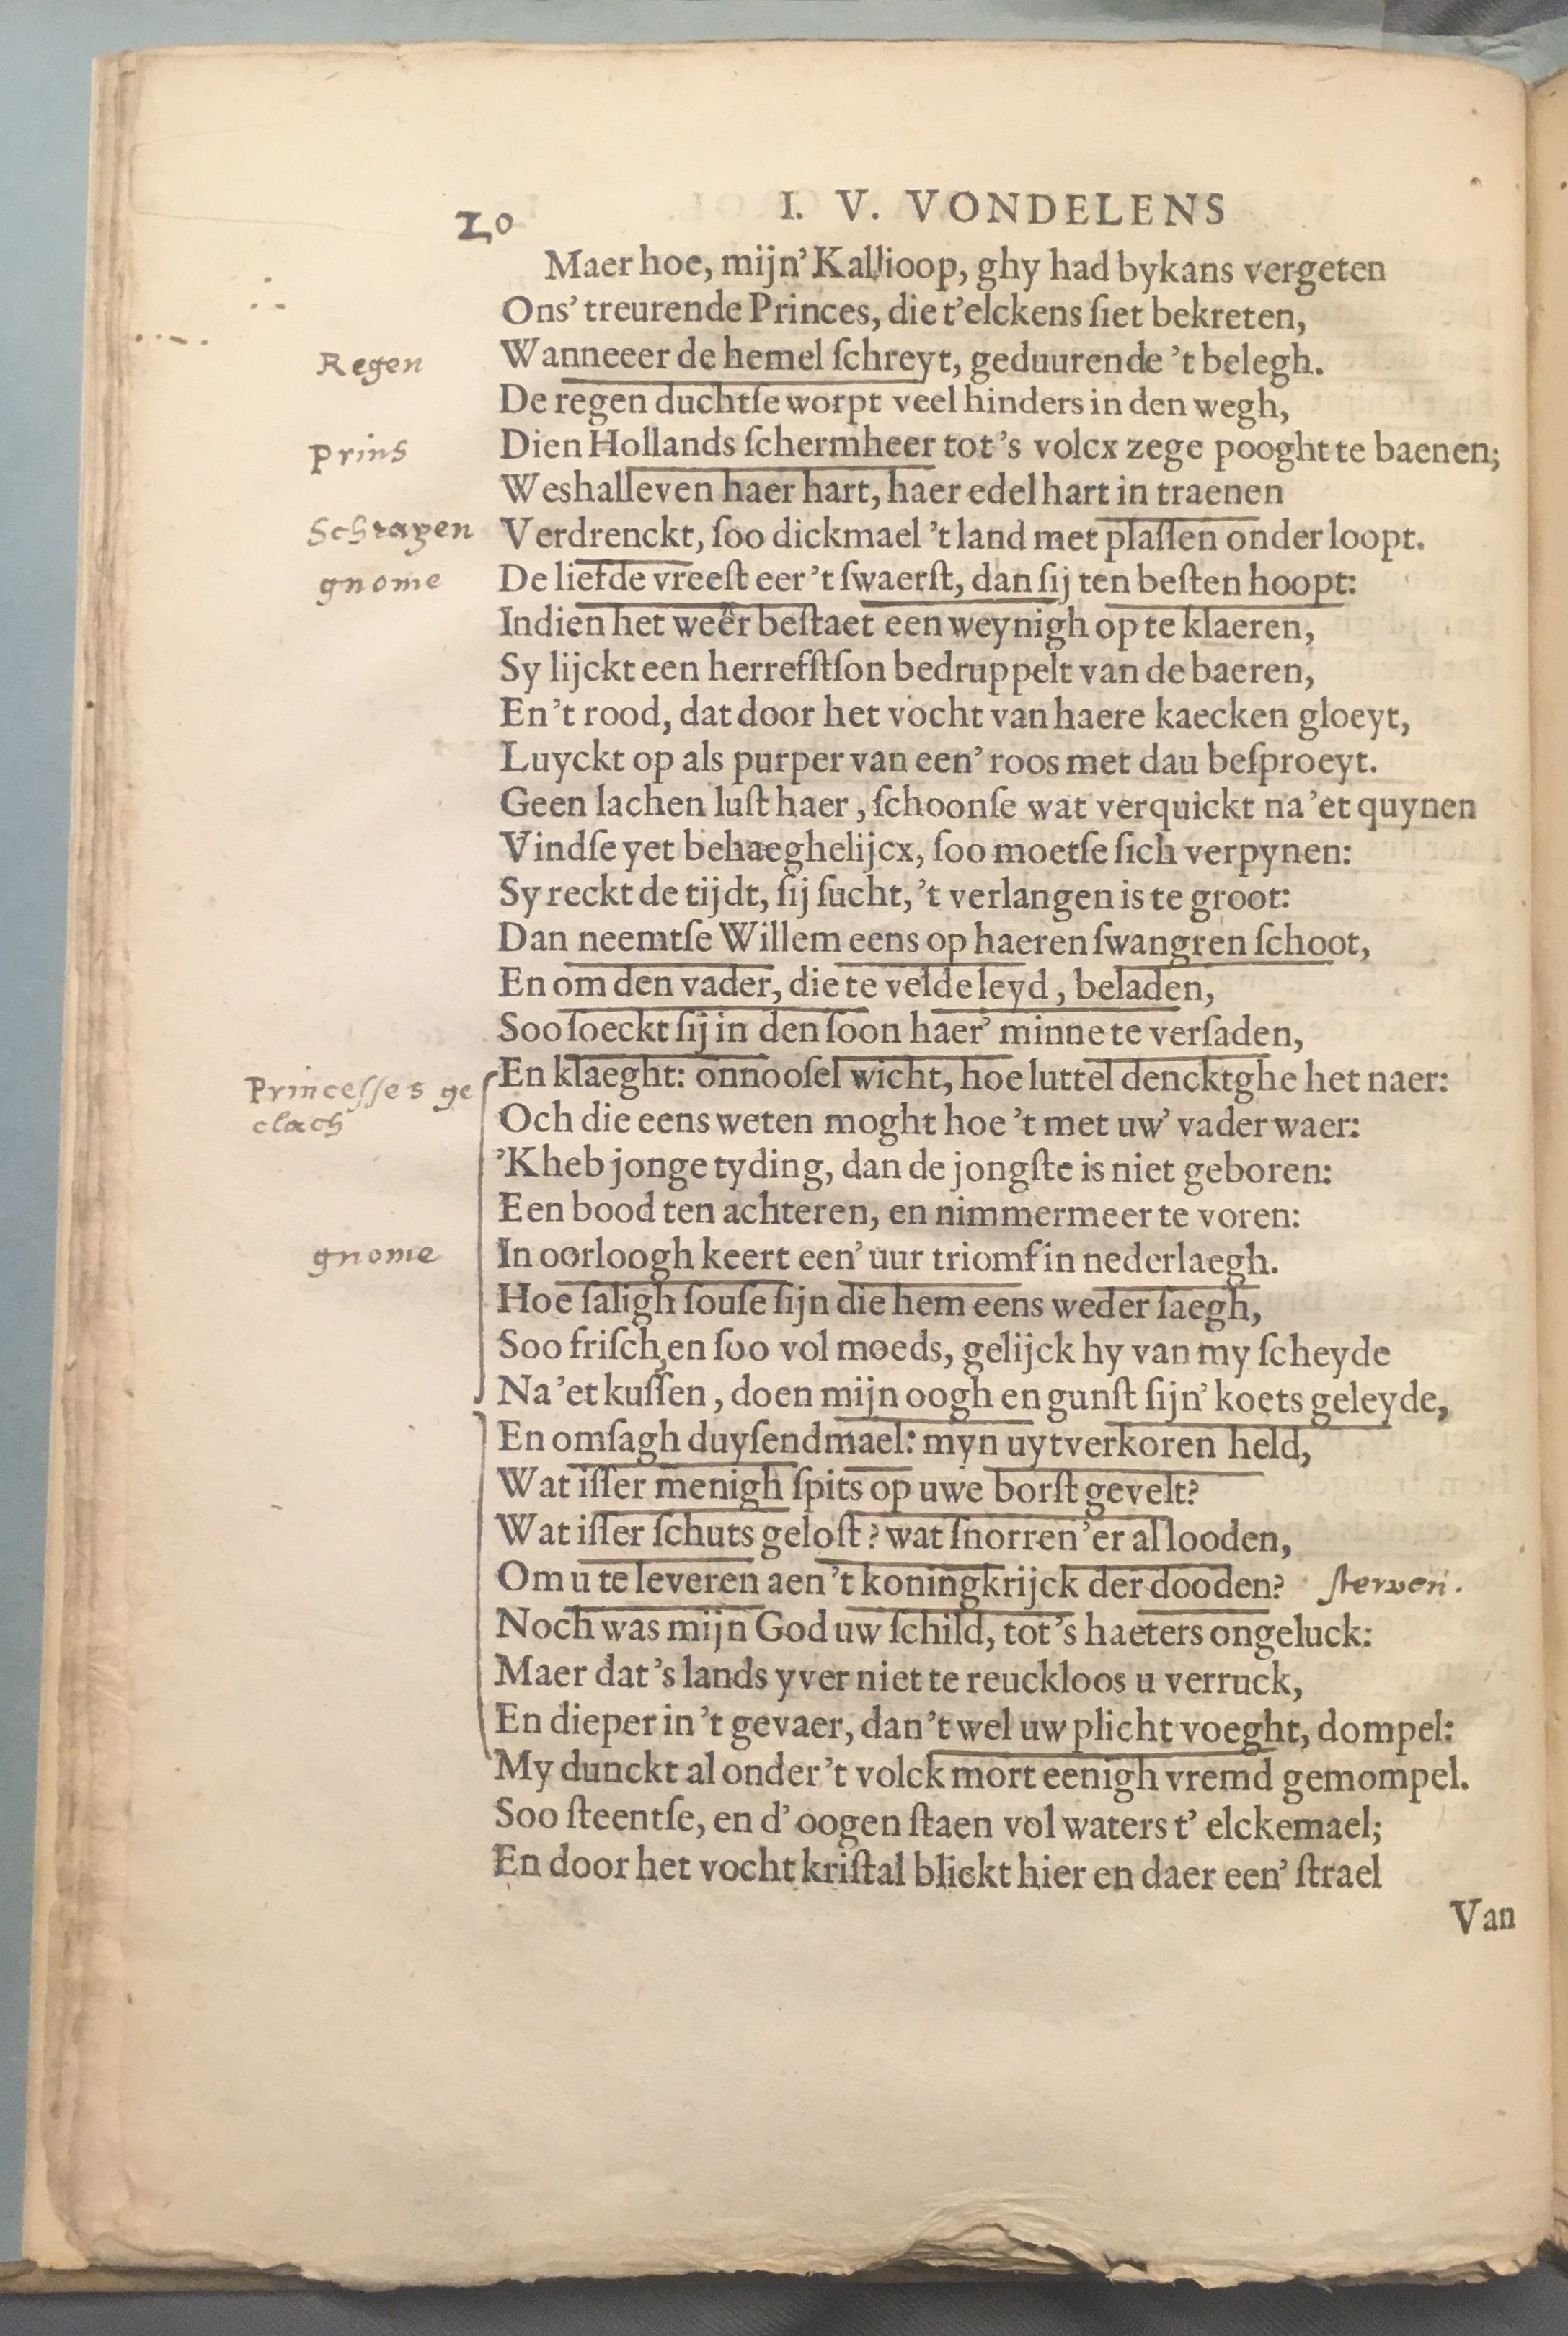 20
I. V. VONDELENS
Maer hoe, mijn' Kallioop, ghy had bykans vergeten
Ons' treurende Princes, die t'elckens ſiet bekreten,
Regen
Wanneeer de hemel ſchreyt, geduurende 't belegh.
De regen duchtſe worpt veel hinders in den wegh,
Prins
Dien Hollands ſchermheer tot 's volcx zege pooght te baenen;
Weshalleven haer hart, haer edel hart in traenen
Schrayen
Verdrenckt, ſoo dickmael 't land met plaſſen onder loopt.
gnome
De liefde vreeſt eer 't ſwaerſt, dan ſij ten beſten hoopt:
Indien het weêr beſtaet een weynigh op te klaeren,
Sy lijckt een herrefſtſon bedruppelt van de baeren,
En 't rood, dat door het vocht van haere kaecken gloeyt,
Luyckt op als purper van een' roos met dau beſproeyt.
Geen lachen luſt haer, ſchoonſe wat verquickt na 'et quynen
Vindſe yet behaeghelijcx, ſoo moetſe ſich verpynen:
Sy reckt de tijdt, ſij ſucht, 't verlangen is te groot:
Dan neemtſe Willem eens op haeren ſwangren ſchoot,
En om den vader, die te velde leyd, beladen,
Soo ſoeckt ſij in den ſoon haer' minne te verſaden,
Princeſſes ge
clach
En klaeght: onnooſel wicht, hoe luttel dencktghe het naer:
Och die eens weten moght hoe 't met uw' vader waer:
'K heb jonge tyding, dan de jongſte is niet geboren:
Een bood ten achteren, en nimmermeer te voren:
gnome
In oorloogh keert een' uur triomf in nederlaegh.
Hoe ſaligh ſouſe ſijn die hem eens weder ſaegh,
Soo friſch, en ſoo vol moeds, gelijck hy van my ſcheyde
Na 'et kuſſen, doen mijn oogh en gunſt ſijn' koets geleyde,
En omſagh duyſendmael: myn uytverkoren held,
Wat iſſer menigh ſpits op uwe borſt gevelt?
Wat iſſer ſchuts geloſt? wat ſnorren 'er al looden,
Om u te leveren aen 't koningkrijck der dooden?
ſterven.
Noch was mijn God uw ſchild, tot 's haeters ongeluck:
Maer dat 's lands yver niet te reuckloos u verruck,
En dieper in 't gevaer, dan 't wel uw plicht voeght, dompel:
My dunckt al onder 't volck mort eenigh vremd gemompel.
Soo ſteentſe, en d' oogen ſtaen vol waters t' elckemael;
En door het vocht kriſtal blickt hier en daer een' ſtrael
Van